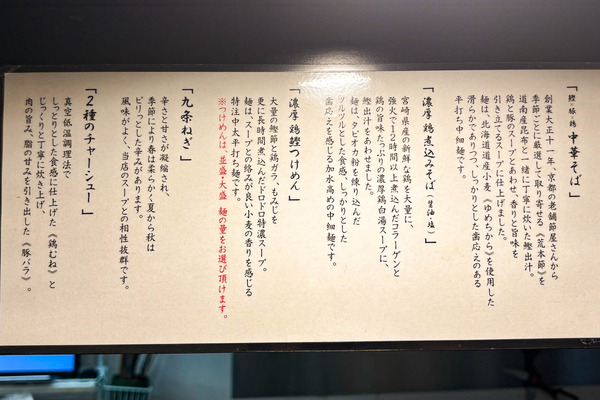 「鰹・豚・鶏 中華そば」
創業大正十一年、京都の老舗節屋さんから
季節ごとに厳選して取り寄せる《荒本節》を
道南産昆布と一緒に丁寧に炊いた鰹出汁。
鶏と豚のスープとあわせ、香りと旨味を
引き立てるスープに仕上げました。
麺は、北海道道産小麦《ゆめちから》を使用した
滑らかでありつつ、しっかりとした歯応えのある
平打ち中細麺です。
「濃厚 鶏煮込みそば（醤油・塩）」
宮崎県産の新鮮な鶏を大量に、
強火で12時間以上煮込んだコラーゲンと
鶏の旨味たっぷりの濃厚鶏白湯スープに、
鰹出汁をあわせました。
麺は、タピオカ粉を練り込んだ
ツルツルとした食感、しっかりとした
歯応えを感じる加水高めの中細麺です。
「濃厚 鶏鰹つけめん」
大量の鰹節と鶏ガラ、もみじを
更に長時間煮込んだドロドロ特濃スープ。
麺は、スープとの絡みが良い小麦の香りを感じる
特注中太平打ち麺です。
※つけめんは、並盛・大盛 麺の量をお選び頂けます。
「九条ねぎ」
辛さと甘さが凝縮され、
季節により春は柔らかく夏から秋は
ピリっとした辛みがあります。
風味がよく、当店のスープとの相性抜群です。
「2種のチャーシュー」
真空低温調理法で
しっとりとした食感に仕上げた《鶏むね》と
じっくりと丁寧に炊き上げ、
肉の旨み、脂の甘みを引き出した《豚バラ》。